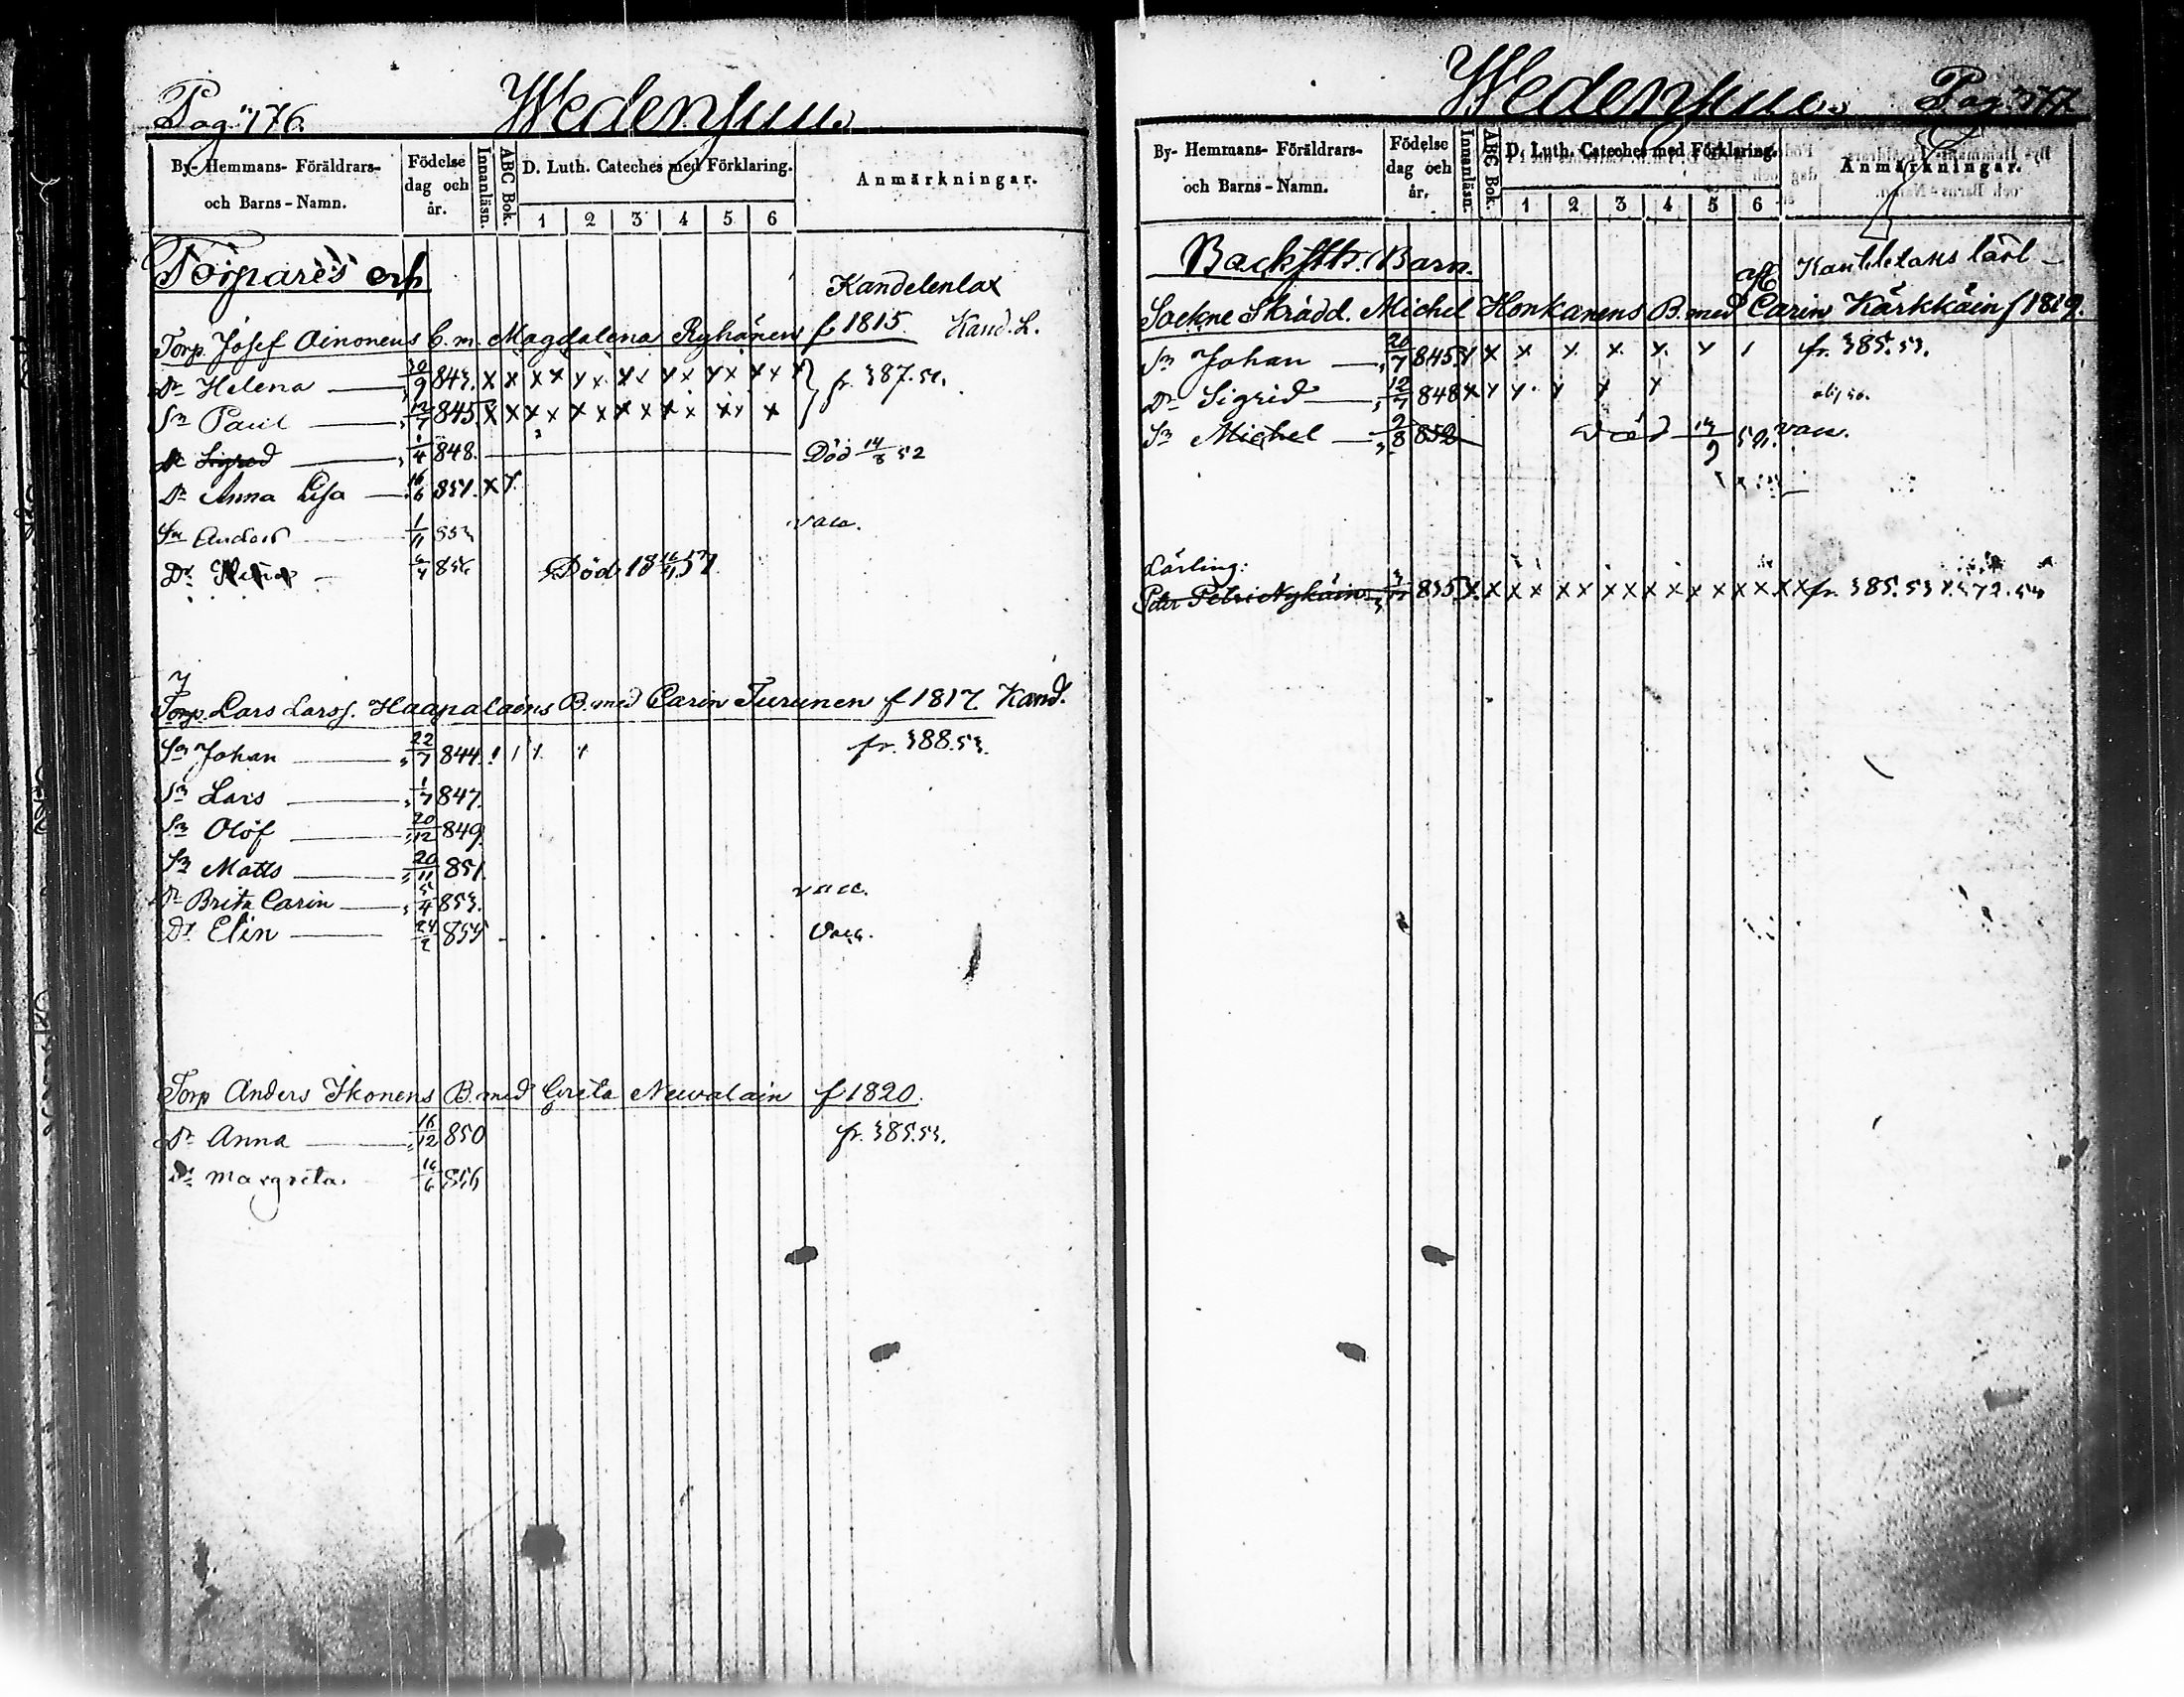 Pag. 176.
Wedensuu.
By- Hemmans- Föräldrars- och Barns-Namn.
Födelse dag och år.
Innanläsn.
ABC Bok.
D. Luth. Cateches med Förklaring.
1 2 3 4 5 6
Anmärkningar.
Torpares
Kandelenlax
Torp. Josef Oinonens b. m. Magdalena Ryhänen f 1815. Kand. L.
Dr Helena 9 843. x x x x x x x x x x x x x x fr. 387.
Sn Paul 7 845. x x x x x x x x x x x x x
Dr Sigred 1/4 848. Död 14/8 52
Dr Anna Lisa 16/6 851. x x
Sn Anders 1/11 853 vacc.
Dr 4 856 Död 18 57
Torp. Lars Larss. Haapalains B. med Carin Turunen f 1817. Kand.
Sn Johan 22/7 844. fr. 388.53.
Sn Lars 1/7 847.
Sn Olof 20/12 849.
Sn Matts 20/11 851.
Dr Brita Carin 5/4 853. vacc.
Dr Elin 24/2 855 Vacc.
Torp Anders Ikonens B. med Greta Newalain f 1820.
Dr Anna 16/12 850 fr. 385.53.
Dr Margreta. 6 856
Wedensuu. Pag. 177
By- Hemmans- Föräldrars- och Barns-Namn.
Födelse dag och år.
Innanläsn.
ABC Bok.
D. Luth. Cateches med Förklaring.
1 2 3 4 5 6
Anmärkningar.
Backsth. Barn.
Sockne Skrädd. Michel Honkanens B. med Carin Kärkkäin f 1819.
Sn Johan 20/7 845. x x x x x x x fr. 385.53.
Dr Sigrid 12/7 848 x x x x x x
Sn Michel 9/8 852 Död 14/9 52. vacc.
Lärling:
Peter Petri Nykäin 835 x x x x x x x x x x x x x x x fr. 385.53 472.54